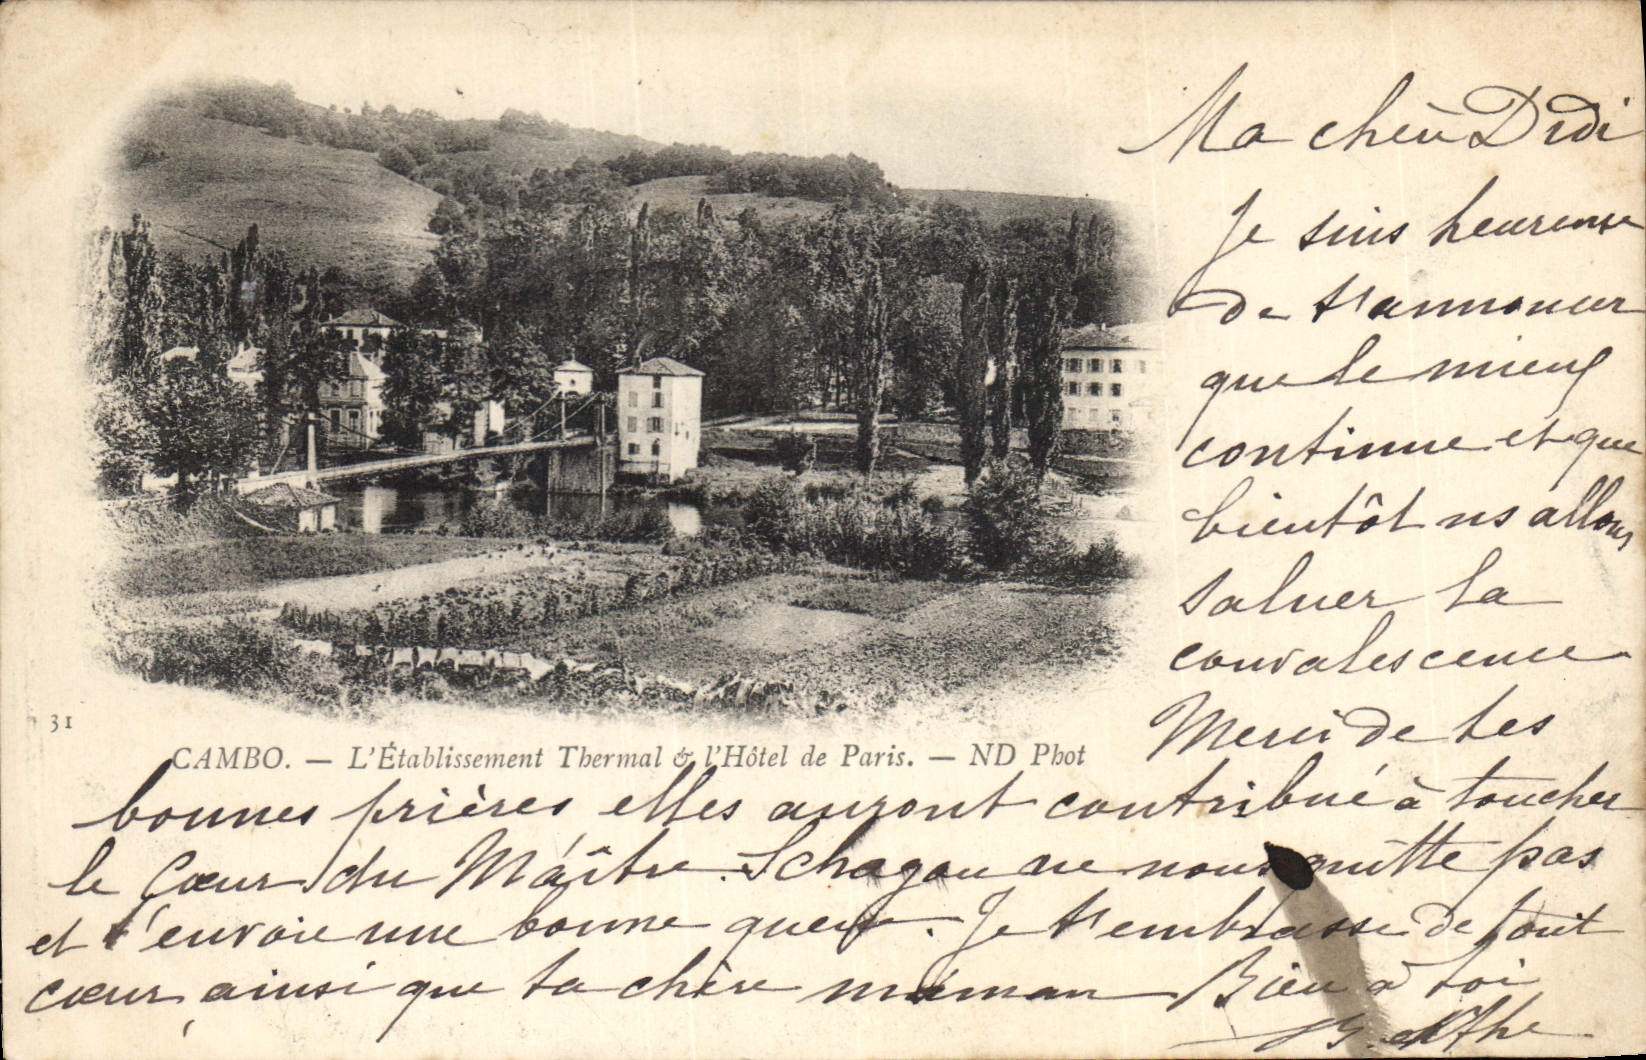 Ma chère Didi
Je suis heureuse
de t'annoncer
que le mieux
continue et que
bientôt ns allons
saluer la
convalescence
Merci de tes
31
CAMBO. — L'Établissement Thermal & l'Hôtel de Paris. — ND Phot
bonnes prières elles auront contribué à toucher
le Cœur du Maître. ne nous quitte pas
et t'envoie une bonne . Je t'embrasse de tout
cœur, ainsi que ta chère maman Bien à toi
Berthe